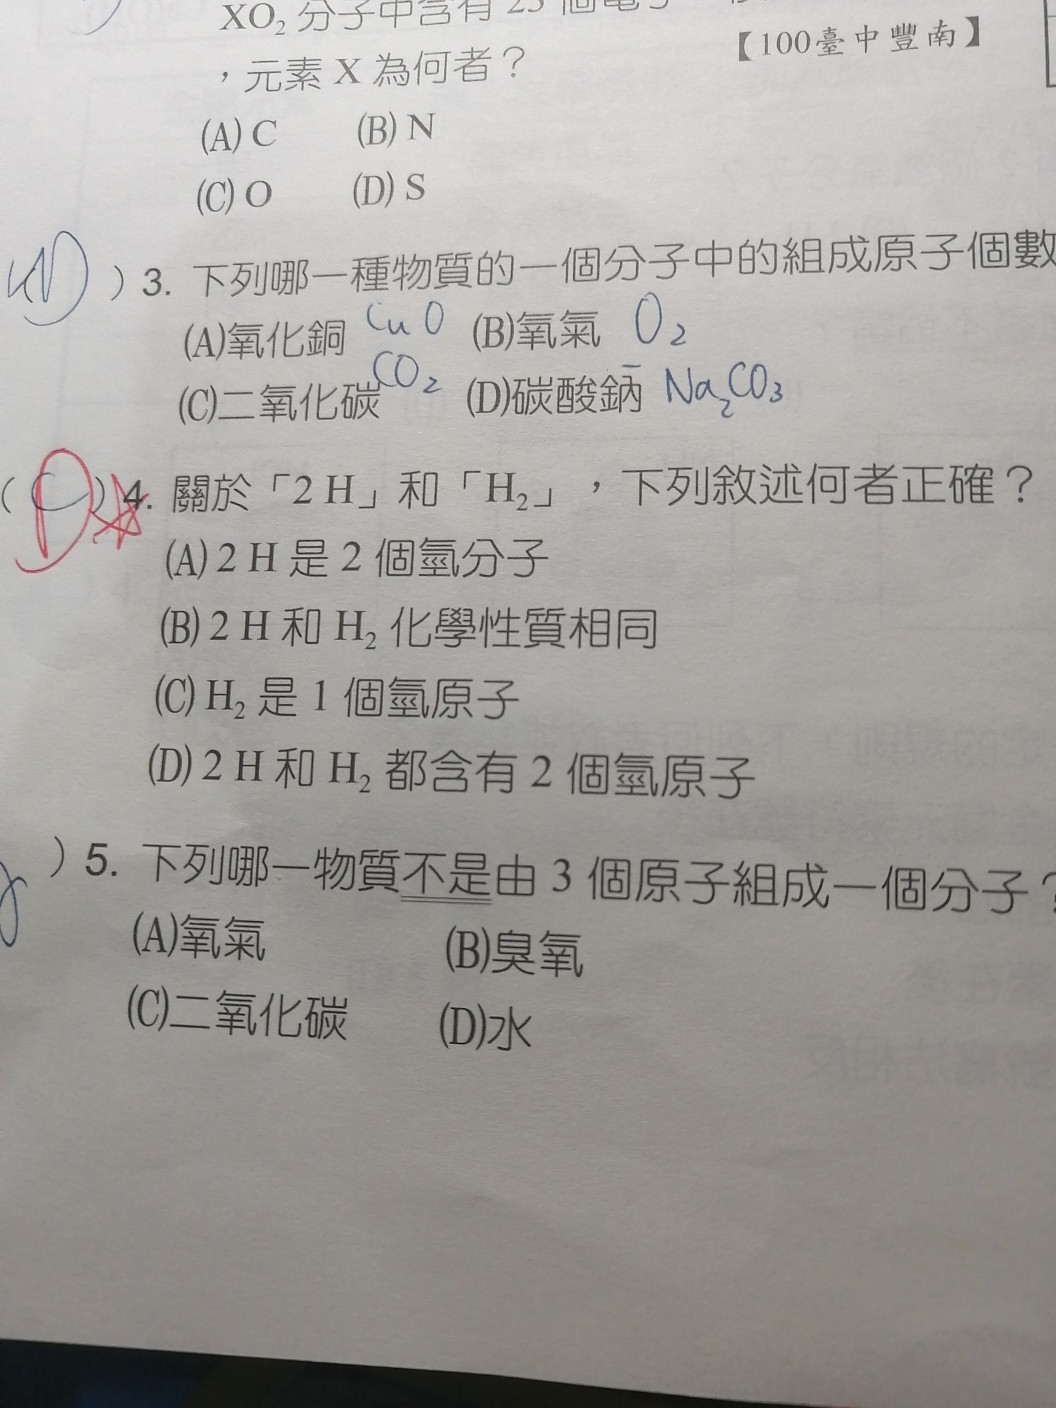 XO₂ 分子中含有 23 個電子
【100臺中豐南】
，元素 X 為何者？
(A) C (B) N
(C) O (D) S
(D) ) 3. 下列哪一種物質的一個分子中的組成原子個數
(A)氧化銅 CuO (B)氧氣 O₂
(C)二氧化碳 CO₂ (D)碳酸鈉 Na₂CO₃
( C ) D 4. 關於「2 H」和「H₂」，下列敘述何者正確？
(A) 2 H 是 2 個氫分子
(B) 2 H 和 H₂ 化學性質相同
(C) H₂ 是 1 個氫原子
(D) 2 H 和 H₂ 都含有 2 個氫原子
) 5. 下列哪一物質不是由 3 個原子組成一個分子？
(A)氧氣 (B)臭氧
(C)二氧化碳 (D)水